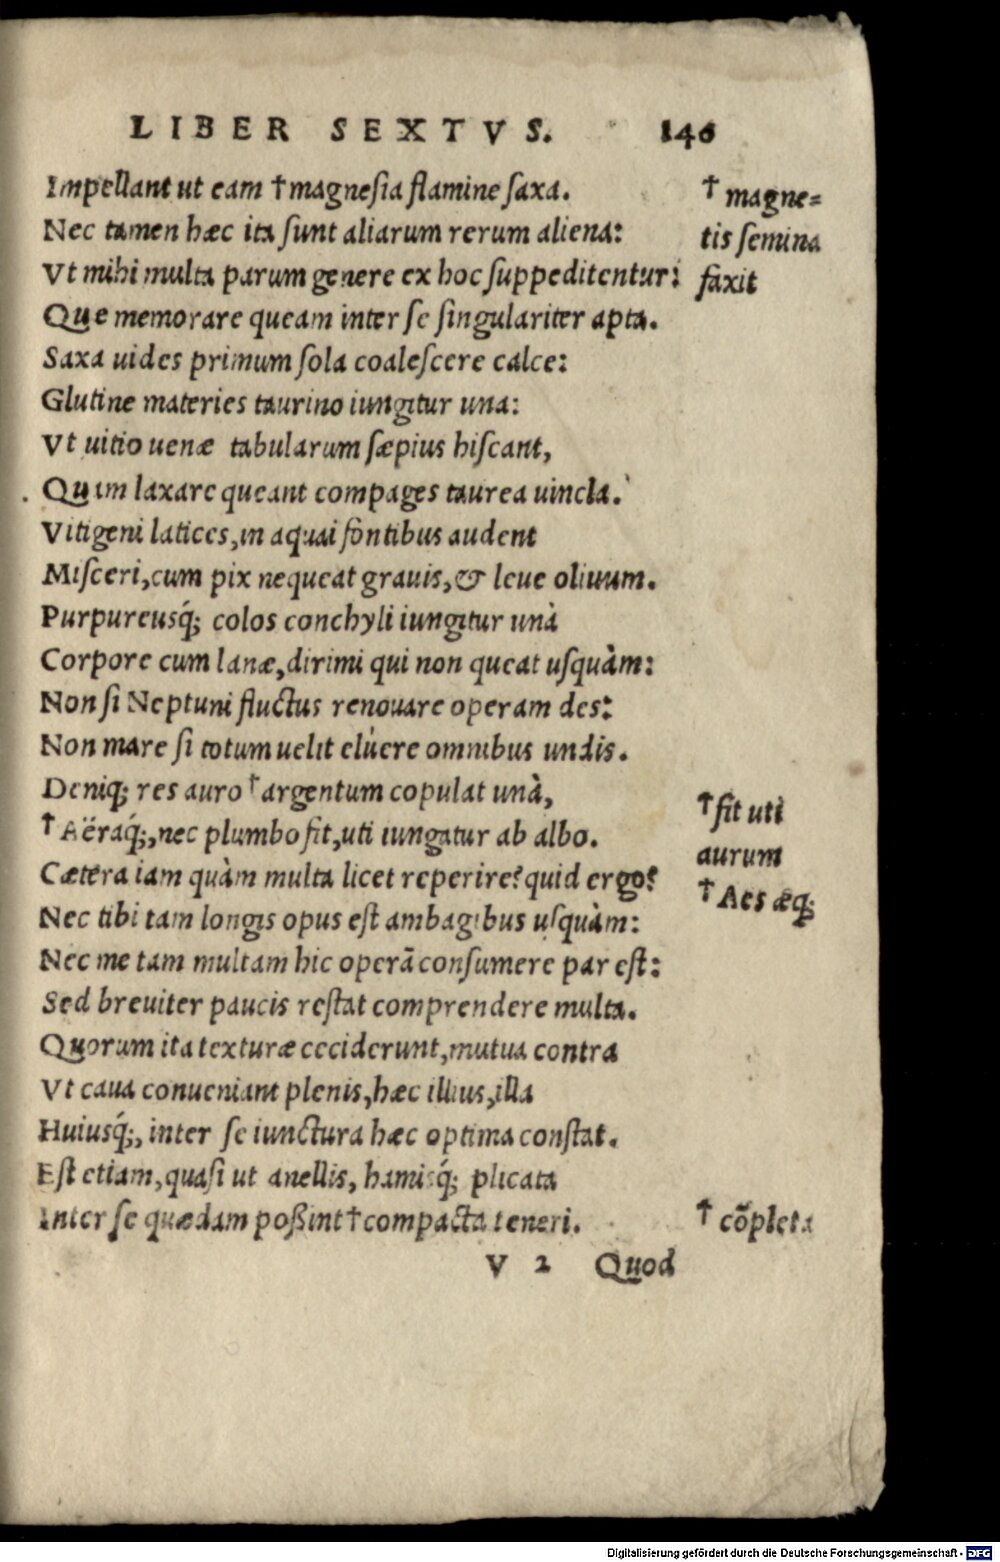 LIBER SEXTVS. 146
Impellant ut eam †magnesia flamine saxa.
† magne=
Nec tamen hæc ita sunt aliarum rerum aliena:
tis semina
Vt mihi multa parum genere ex hoc suppeditentur:
faxit
Que memorare queam inter se singulariter apta.
Saxa uides primum sola coalescere calce:
Glutine materies taurino iungitur una:
Vt uitio uenæ tabularum sæpius hiscant,
Quàm laxare queant compages taurea uincla.
Vitigeni latices, in aquai fontibus audent
Misceri, cum pix nequeat grauis, & leue oliuum.
Purpureusq́; colos conchyli iungitur unà
Corpore cum lanæ, dirimi qui non queat usquàm:
Non si Neptuni fluctus renouare operam des:
Non mare si totum uelit elùere omnibus undis.
Deniq; res auro †argentum copulat unà,
† fit utì
† Aëraq́;, nec plumbo fit, uti iungatur ab albo.
aurum
Cætera iam quàm multa licet reperire? quid ergo?
† Aes æq;
Nec tibi tam longis opus est ambagibus usquàm:
Nec me tam multam hic operā consumere par est:
Sed breuiter paucis restat comprendere multa.
Quorum ita texturæ ceciderunt, mutua contra
Vt caua conueniant plenis, hæc illius, illa
Huiusq́;, inter se iunctura hæc optima constat.
Est etiam, quasi ut anellis, hamisq́; plicata
Inter se quædam poßint †compacta teneri.
† cōpleta
V 2 Quod
Digitalisierung gefördert durch die Deutsche Forschungsgemeinschaft - DFG